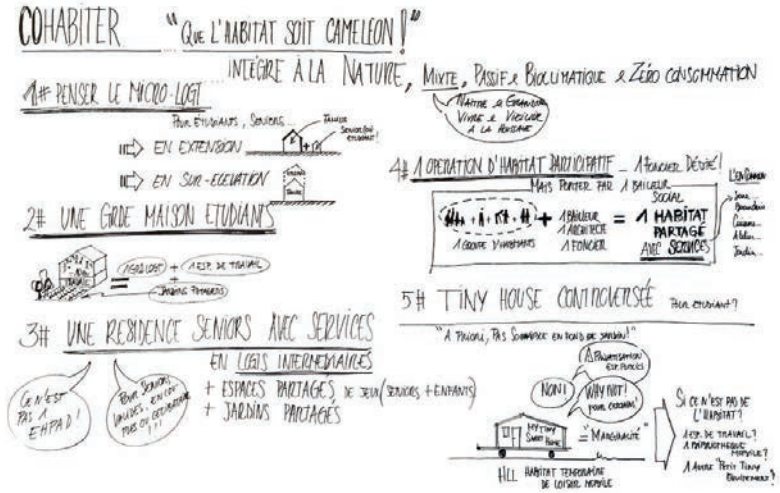 COHABITER "QUE L'HABITAT SOIT CAMELEON !"
INTÉGRÉ À LA NATURE, MIXTE, PASSIF & BIOCLIMATIQUE & ZÉRO CONSOMMATION
NAITRE & GRANDIR
VIVRE & VIEILLIR
A LA
1# PENSER LE MICRO-LOGT
POUR ETUDIANTS, SENIORS...
FAMILLE
SENIOR (OU
ETUDIANT!
EN EXTENSION
EN SUR-ELEVATION
2# UNE GRDE MAISON ETUDIANTS
1 GRD LOGT + 1 ESP. DE TRAVAIL
=
+
JARDINS PARTAGÉS
3# UNE RESIDENCE SENIORS AVEC SERVICES
EN LOGTS INTERMEDIAIRES
+ ESPACES PARTAGÉS DE JEUX (SENIORS + ENFANTS)
+ JARDINS PARTAGÉS
CE N'EST
PAS 1
EHPAD!
POUR SENIORS
VALIDES, EN
!!!
4# 1 OPERATION D'HABITAT PARTICIPATIF ... 1 FONCIER DÉDIÉ!
MAIS PORTER PAR 1 BAILLEUR
SOCIAL
+ 1 BAILLEUR = 1 HABITAT
1 ARCHITECTE PARTAGÉ
1 GROUPE D'HABITANTS 1 FONCIER AVEC SERVICES
L'EN COMMUN
Buanderie
Cuisine...
Atelier...
Jardin...
5# TINY HOUSE CONTROVERSÉE POUR ETUDIANT?
"A PRIORI, PAS SOUHAITÉE EN FOND DE JARDIN!"
PRIVATISATION
ESP. PUBLICS
NON!
WHY NOT!
MY TINY
SWEET HOME
= "MARGINALITÉ"
HLL HABITAT TEMPORAIRE
DE LOISIR MOBILE
SI CE N'EST PAS DE
L'HABITAT?
1 ESP. DE TRAVAIL?
1 BIBLIOTHEQUE
MOBILE?
1 AUTRE "PETIT TINY
EQUIPEMENT"?